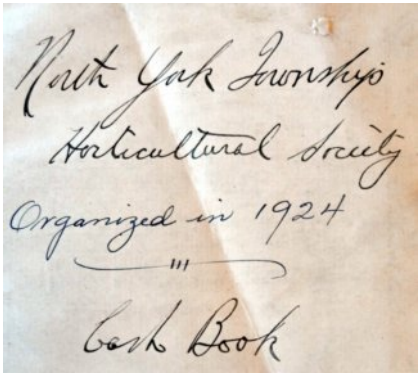 North York Townships
Horticultural Society
Organized in 1924
Cash Book